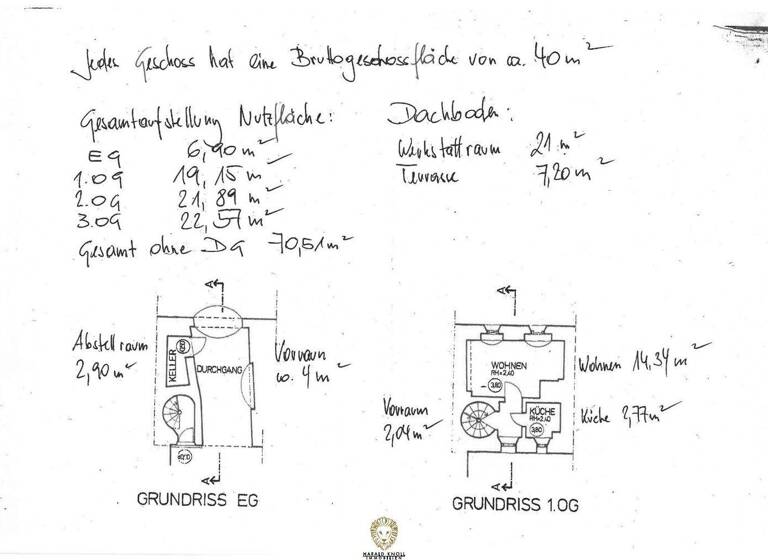 Jedes Geschoss hat eine Bruttogeschossfläche von ca. 40 m²
Gesamtaufstellung Nutzfläche:
EG 6,90 m²
1.OG 19,15 m²
2.OG 21,89 m²
3.OG 22,57 m²
Gesamt ohne DG 70,51 m²
Dachboden:
Werkstattraum 21 m²
Terrasse 7,20 m²
A
Abstellraum
2,90 m²
KELLER
DURCHGANG
Vorraum
ca. 4 m²
±0,0
A
GRUNDRISS EG
A
WOHNEN
RH=2,40
3,80
Wohnen 14,34 m²
Vorraum
2,04 m²
KÜCHE
RH=2,40
3,80
Küche 2,77 m²
A
GRUNDRISS 1.OG
HARALD KNOLL
IMMOBILIEN